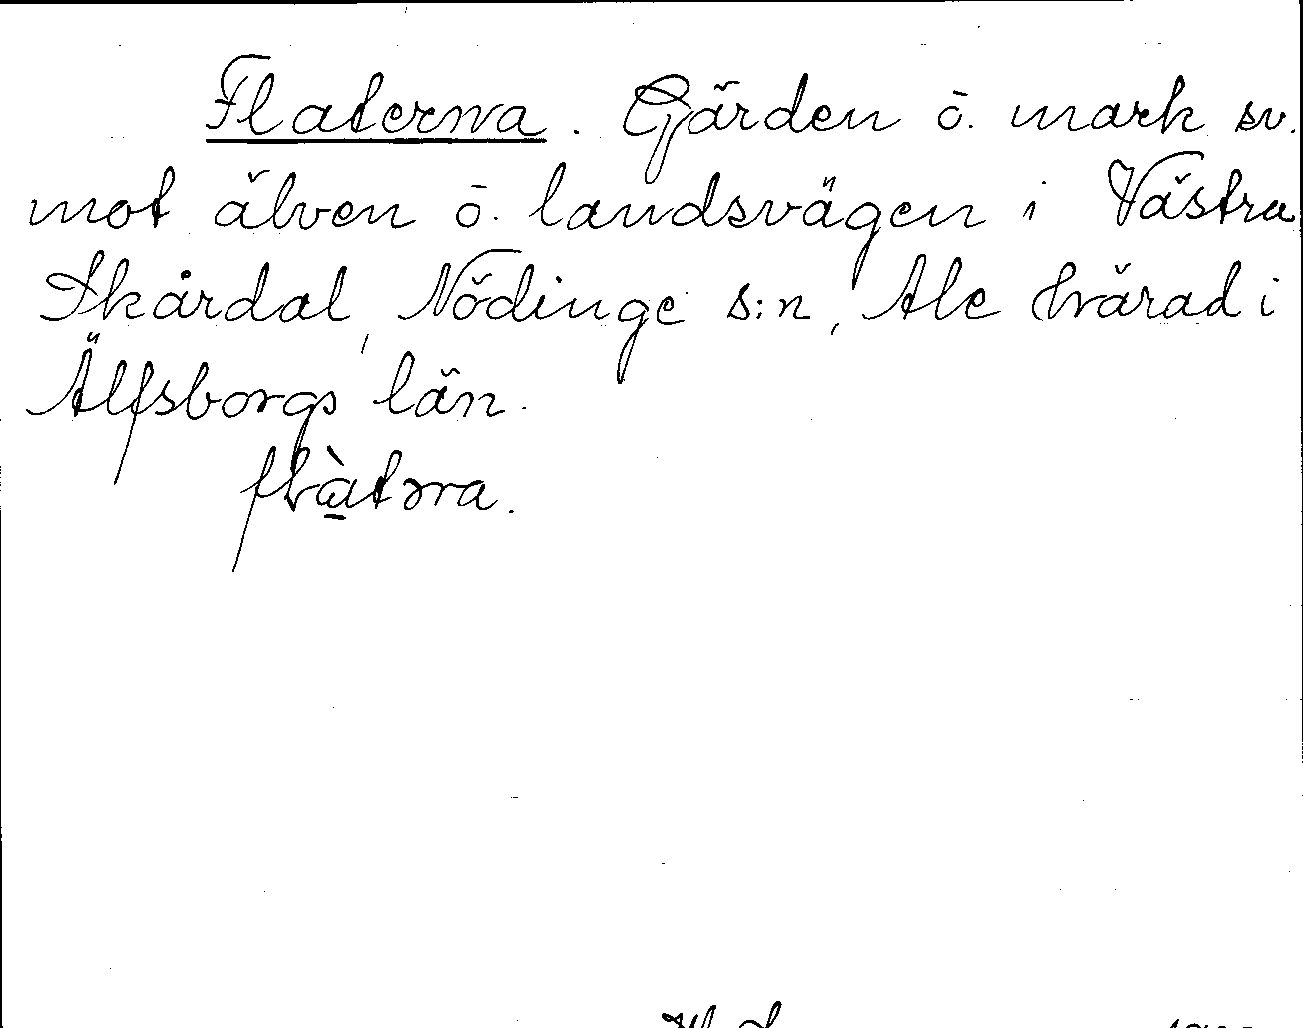 Flaterna. Gärden ö. mark sv.
mot älven ö. landsvägen i Västra
Skårdal, Nödinge s:n, Ale härad i
Älfsborgs län.
flàtəra.